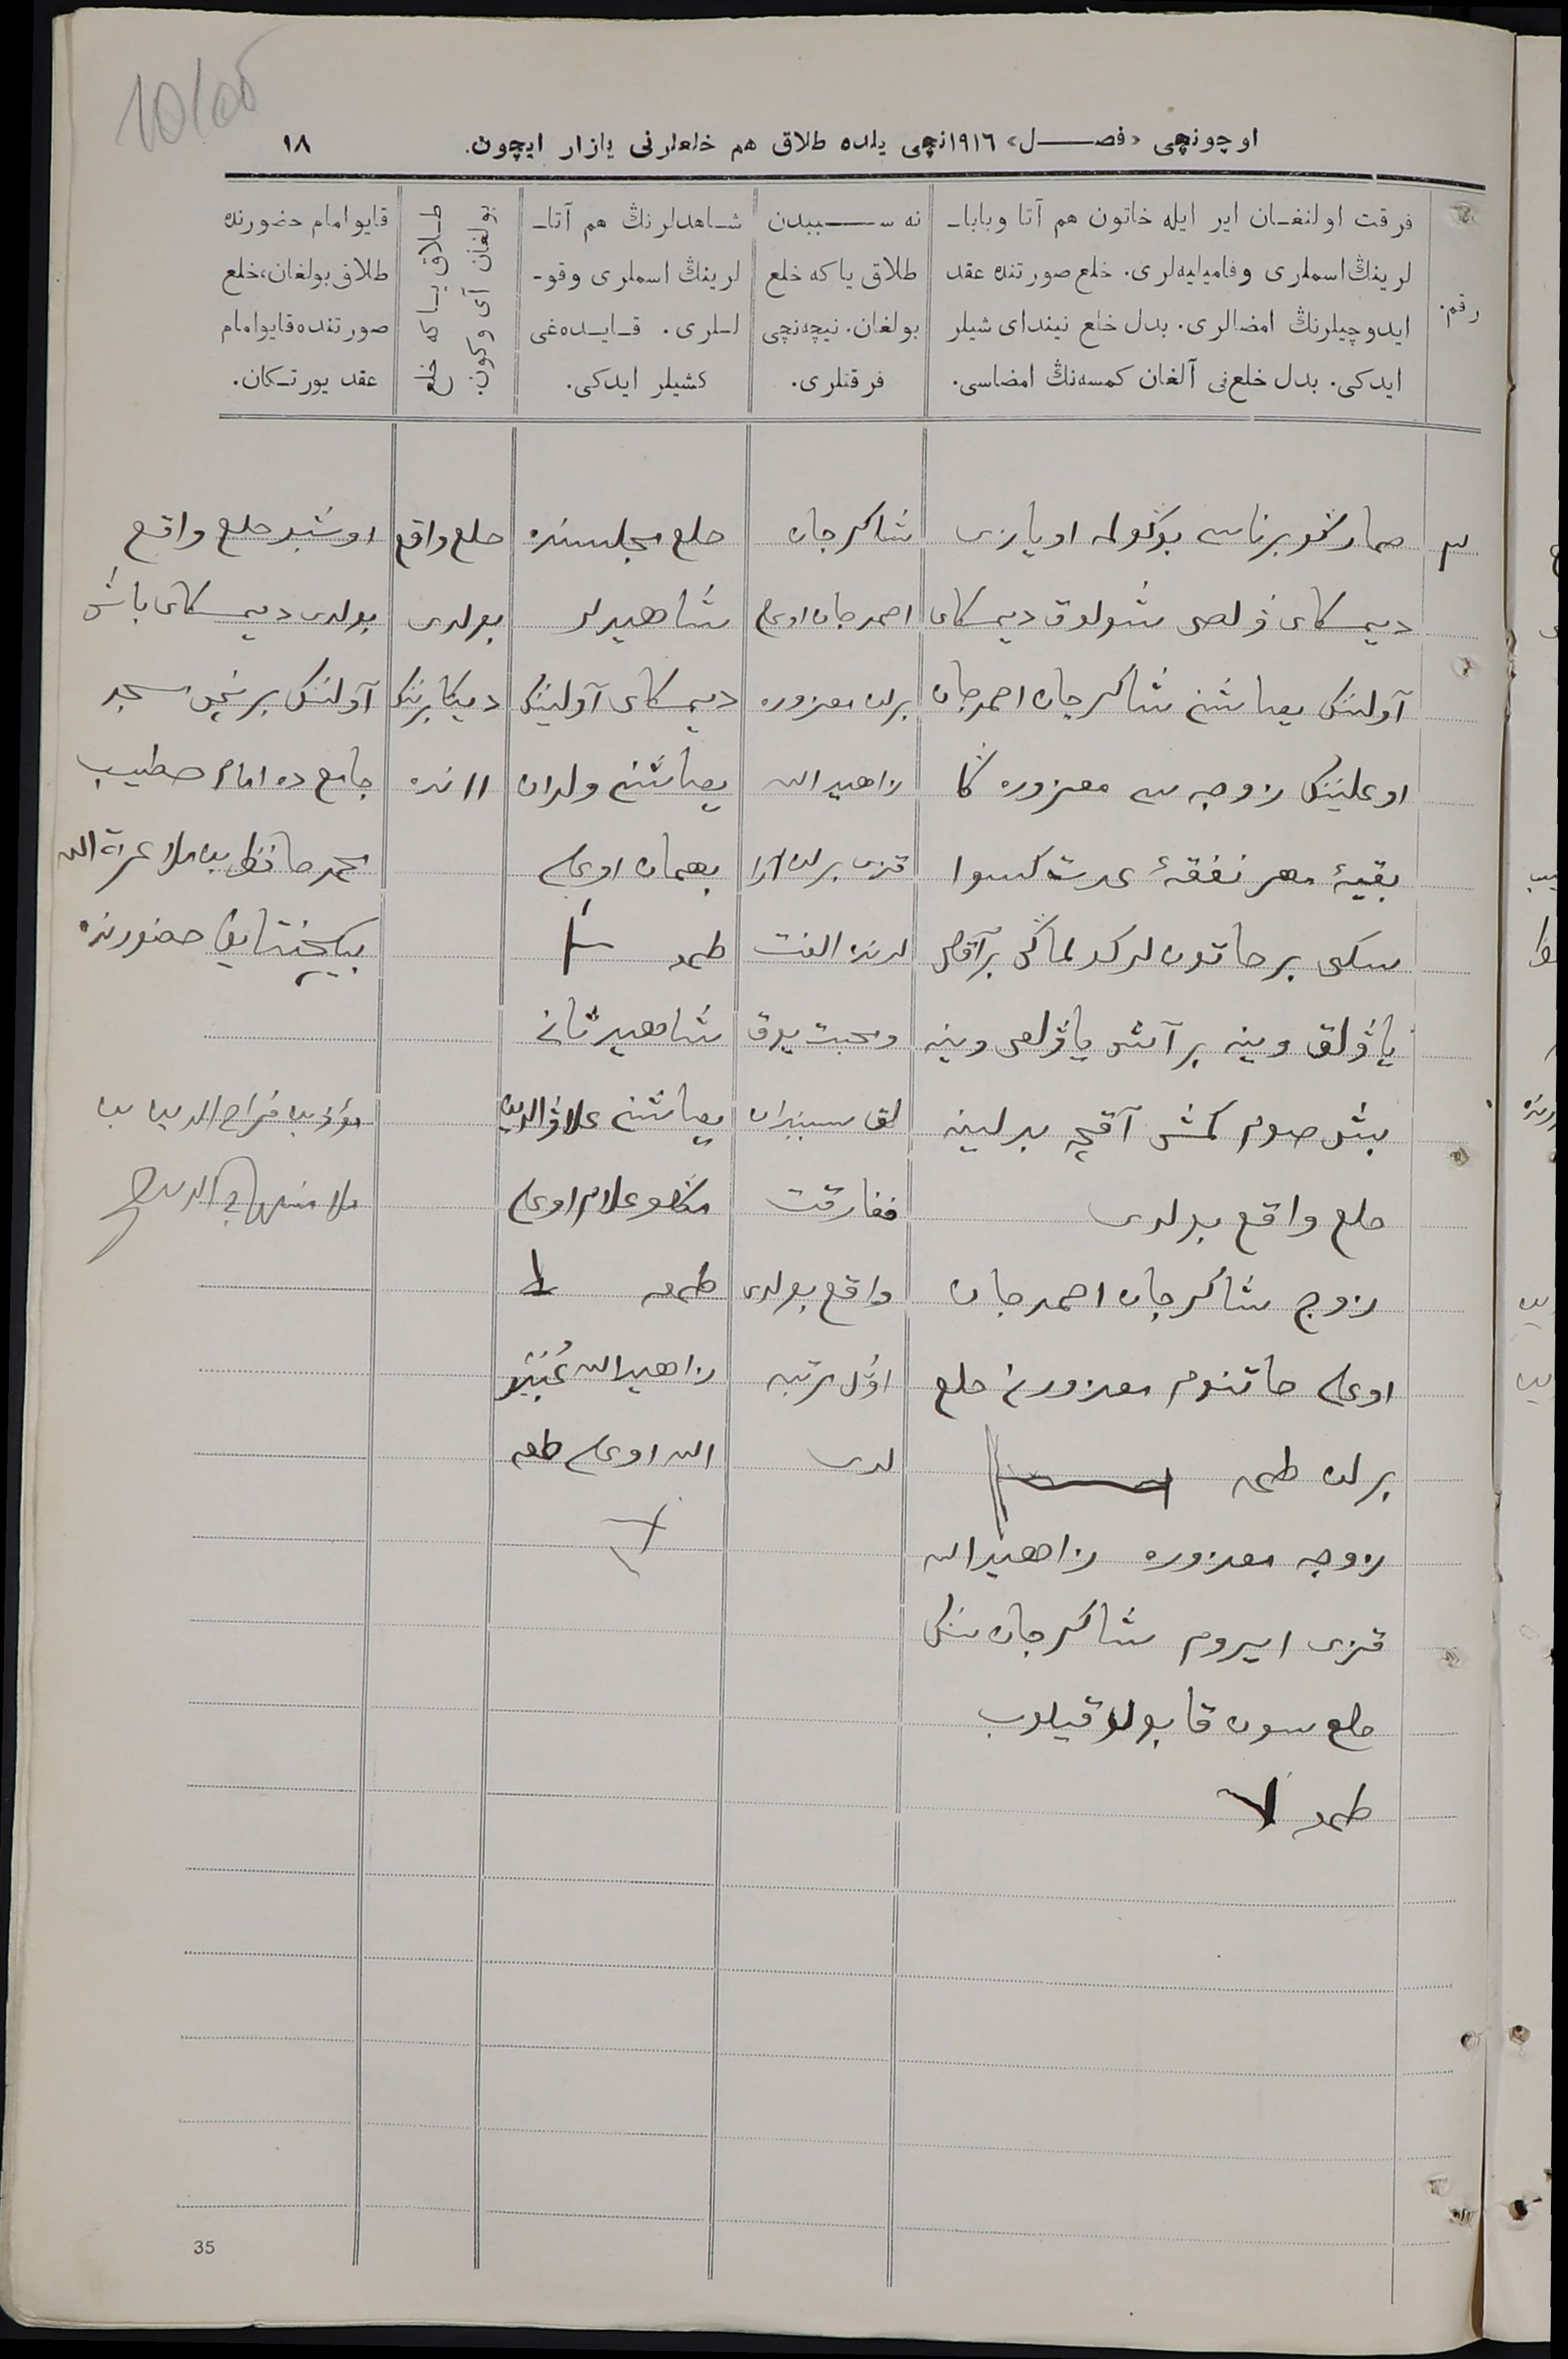 10/об
اوچونچی «فصل» ۱۹۱٦نچی یلده طلاق هم خلعلرنی یازار ایچون.
۱۸
رقم.
فرقت اولنغان ایر ایله خاتون هم آتا وبابا-
لرینڭ اسملری وفامیلیه‌لری. خلع صورتنده عقد
ایدوچیلرنڭ امضالری. بدل خلع نیندای شیلر
ایدکی. بدل خلع‌نی آلغان کمسه‌نڭ امضاسی.
نه سببدن
طلاق یا که خلع
بولغان. نیچه‌نچی
فرقتلری.
شاهدلرنڭ هم آتا-
لرینڭ اسملری وقو-
للری. قایده‌غی
کشیلر ایدکی.
طلاق یا که خلع
بولغان آی وکون
قایو امام حضورنده
طلاق بولغان، خلع
صورتنده قایو امام
عقد یورتکان.
۳
صمار غوبرناسی بوگولمه اویازی
دیمسکای ولصی شولوق دیمسکای
آولینک یصاشنی شاکرجان احمدجان
اوغلینک زوجه سی معزوره کا
بقیهٔ مهر نفقهٔ عدت کسوا
سکنی بر خاتون لر
یاولق وینه بر آتش یاولق وینه
بش صوم کمش آقچه بدلینه
خلع واقع بولدی
زوج شاکرجان احمدجان
اوغلی خاتنوم معزوره‌نی خلع
برلن طمغه
زوجه معزوره زاهیدالله
قزی ایروم شاکرجان ننک
خلع سون قابول قیلوب
طمغه
شاکرجان
احمدجان اوغلی
برلن معزوره
زاهیدالله
قزی برلن آرا
لرنده الفت
ومحبت یوق
لق سببندن
مفارقت
واقع بولدی
اوّل مرتبه
لری
خلع مجلسنده
شاهیدلر
دیمسکای آولینک
یصاشنی ولدان
بهمان اوغلی
طمغه
شاهید ثانی
یصاشنی علاؤالدین
اوغلی
طمغه
زاهیدالله عُبَید
الله اوغلی طمغه
خلع واقع
بولدی
دیکابرنک
۱۱ نده
اوشبو خلع واقع
بولدی دیمسکای باش
آولننک برنچی مسجد
جامع ده امام خطیب
محمد حافظ بن ملا عزة الله
بیکچنتایف حضورنده
مؤذن سراج الدین بن
ملا منهاج الدین
35